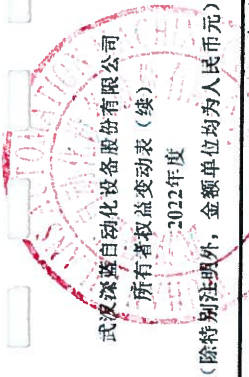 武汉深蓝自动化设备股份有限公司
所有者权益变动表（续）
2022年度
（除特别注明外，金额单位均为人民币元）